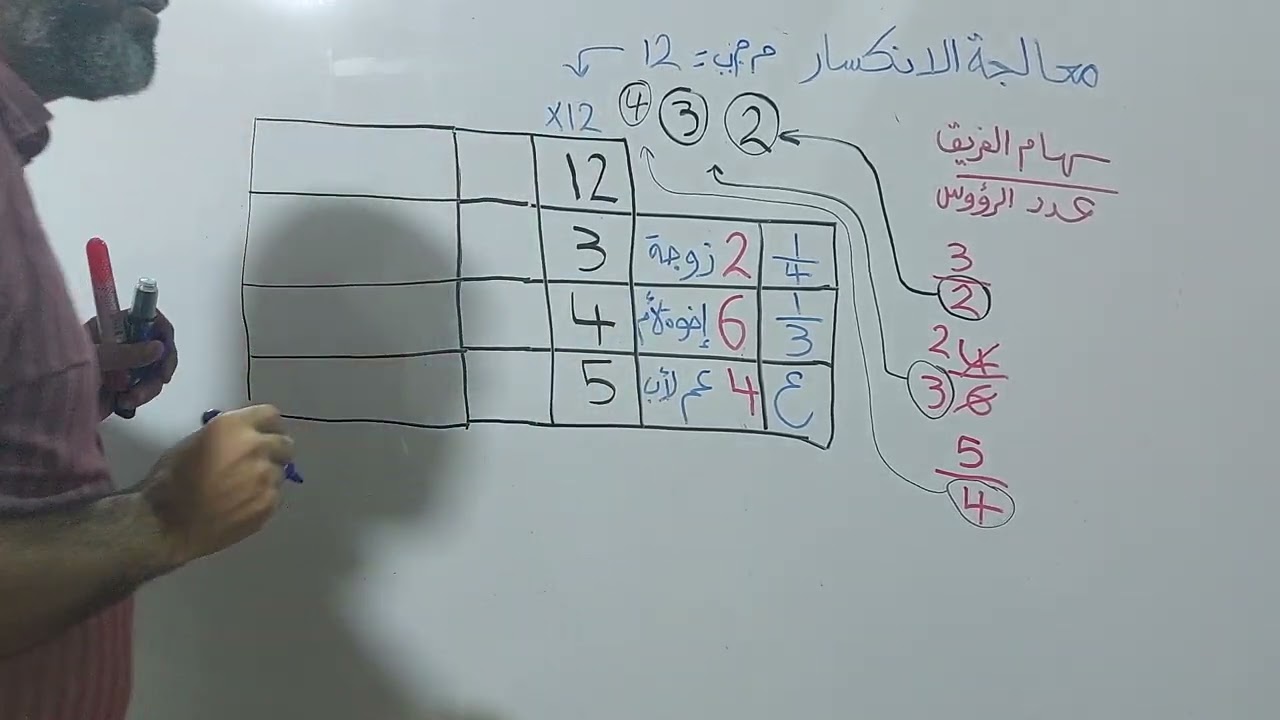 معالجة الانكسار م.م.ب = 12
2 3 4 ×12
سهام الفريق
عدد الرؤوس
12
1/4 2 زوجة 3
1/3 6 إخوة لأم 4
ع 4 عم لأب 5
3/2
2 4/6 3
5/4